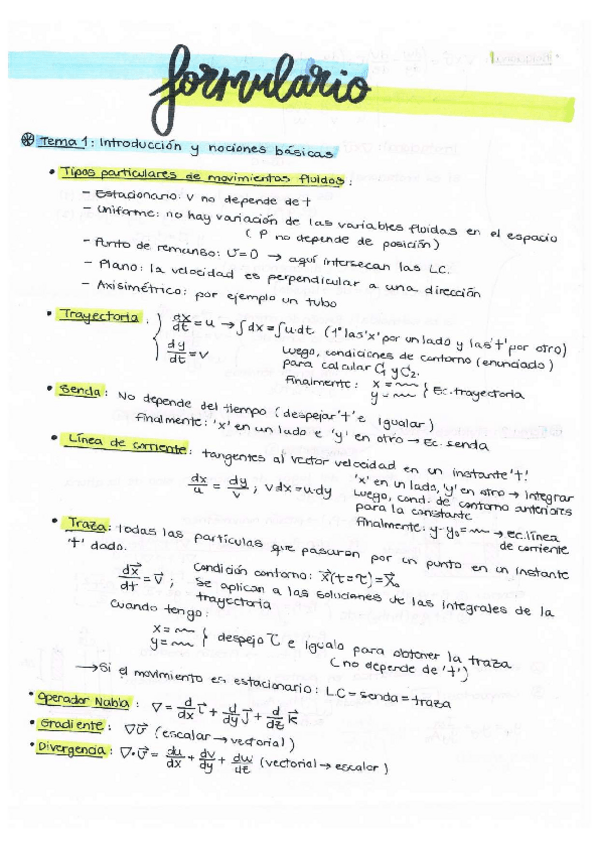 formulario
Tema 1: Introducción y nociones básicas
• Tipos particulares de movimientos fluidos:
– Estacionario: v no depende de t
– Uniforme: no hay variación de las variables fluidas en el espacio
( ρ no depende de posición)
– Punto de remanso: v⃗=0 → aquí intersecan las LC.
– Plano: la velocidad es perpendicular a una dirección
– Axisimétrico: por ejemplo un tubo
• Trayectoria: dx/dt = u → ∫dx = ∫u·dt. (1º las 'x' por un lado y las 't' por otro)
dy/dt = v
luego, condiciones de contorno (enunciado)
para calcular C₁ y C₂.
Finalmente: x = ~~~
y = ~~~ } Ec. trayectoria
• Senda: No depende del tiempo (despejar 't' e igualar)
finalmente: 'x' en un lado e 'y' en otro → Ec. senda
• Línea de corriente: tangentes al vector velocidad en un instante 't'.
dx/u = dy/v ; v dx = u·dy
'x' en un lado, 'y' en otro → Integrar
luego, cond. de contorno anteriores
para la constante
finalmente: y-y₀ = ~~~ → ec. línea
de corriente
• Traza: todas las partículas que pasaron por un punto en un instante
't' dado.
dx⃗/dt = v⃗ ; Condición contorno: x⃗(t=τ) = x⃗₀
se aplican a las soluciones de las integrales de la
trayectoria
Cuando tengo:
x = ~~~
y = ~~~ } despejo τ e igualo para obtener la traza
(no depende de 't')
→ Si el movimiento es estacionario: LC = senda = traza
• Operador Nabla: ∇ = d/dx i⃗ + d/dy j⃗ + d/dz k⃗
• Gradiente: ∇v⃗ (escalar → vectorial)
• Divergencia: ∇·v⃗ = du/dx + dv/dy + dw/dz (vectorial → escalar)